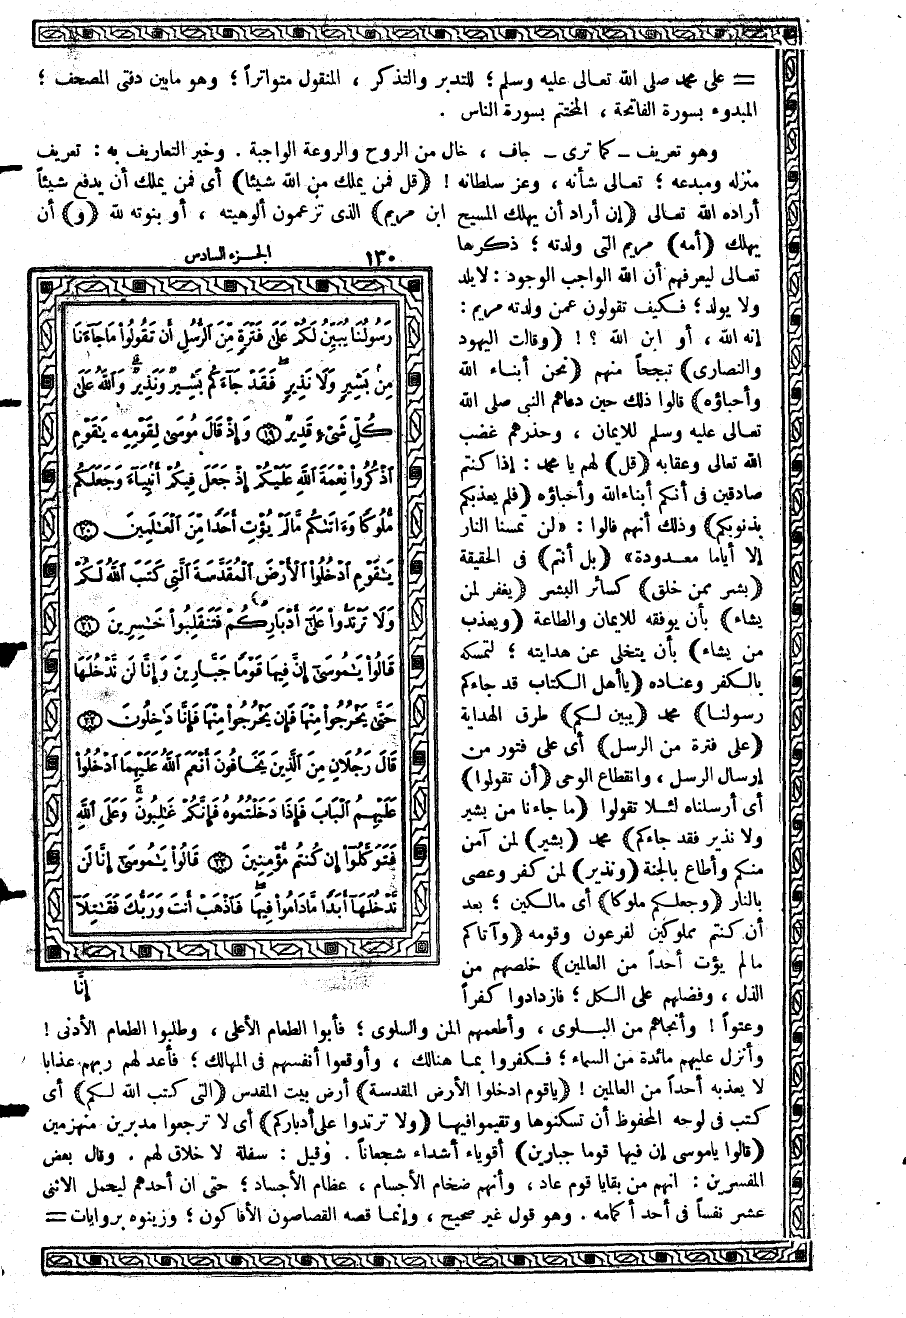 = على محمد صلى الله تعالى عليه وسلم ؛ للتدبر والتذكر ، المنقول متواتراً ؛ وهو مابين دفتى المصحف ؛
المبدوء بسورة الفاتحة ، المختتم بسورة الناس .
وهو تعريف ـ كما ترى ـ جاف ، خال من الروح والروعة الواجبة . وخير التعاريف به : تعريف
منزله ومبدعه ؛ تعالى شأنه ، وعز سلطانه ! (قل فمن يملك من الله شيئا) أى فمن يملك أن يدفع شيئاً
أراده الله تعالى (إن أراد أن يهلك المسيح ابن مريم) الذى تزعمون ألوهيته ، أو بنوته لله (و) أن
يهلك (أمه) مريم التى ولدته ؛ ذكرها
تعالى ليعرفهم أن الله الواجب الوجود : لايلد
ولا يولد ؛ فكيف تقولون عمن ولدته مريم :
إنه الله ، أو ابن الله ؟! (وقالت اليهود
والنصارى) تبجحاً منهم (نحن أبناء الله
وأحباؤه) قالوا ذلك حين دعاهم النبى صلى الله
تعالى عليه وسلم للايمان ، وحذرهم غضب
الله تعالى وعقابه (قل) لهم يا محمد : إذا كنتم
صادقين فى أنكم أبناء الله وأحباؤه (فلم يعذبكم
بذنوبكم) وذلك أنهم قالوا : «لن تمسنا النار
إلا أياما معدودة» (بل أنتم) فى الحقيقة
(بشر ممن خلق) كسائر البشر (يغفر لمن
يشاء) بأن يوفقه للايمان والطاعة (ويعذب
من يشاء) بأن يتخلى عن هدايته ؛ لتمسكه
بالكفر وعناده (ياأهل الكتاب قد جاءكم
رسولنا) محمد (يبين لكم) طرق الهداية
(على فترة من الرسل) أى على فتور من
إرسال الرسل ، وانقطاع الوحى (أن تقولوا)
أى أرسلناه لئلا تقولوا (ما جاءنا من بشير
ولا نذير فقد جاءكم) محمد (بشير) لمن آمن
منكم وأطاع بالجنة (ونذير) لمن كفر وعصى
بالنار (وجعلكم ملوكا) أى مالكين ؛ بعد
أن كنتم مملوكين لفرعون وقومه (وآتاكم
مالم يؤت أحداً من العالمين) خلصهم من
الذل ، وفضلهم على الكل ؛ فازدادوا كفراً
١٣٠ الجزء السادس
رَسُولُنَا يُبَيِّنُ لَكُمْ عَلَىٰ فَتْرَةٍ مِّنَ ٱلرُّسُلِ أَن تَقُولُوا۟ مَا جَآءَنَا
مِنۢ بَشِيرٍ وَلَا نَذِيرٍ ۖ فَقَدْ جَآءَكُم بَشِيرٌ وَنَذِيرٌ ۗ وَٱللَّهُ عَلَىٰ
كُلِّ شَىْءٍ قَدِيرٌ ﴿١٩﴾ وَإِذْ قَالَ مُوسَىٰ لِقَوْمِهِۦ يَٰقَوْمِ
ٱذْكُرُوا۟ نِعْمَةَ ٱللَّهِ عَلَيْكُمْ إِذْ جَعَلَ فِيكُمْ أَنۢبِيَآءَ وَجَعَلَكُم
مُّلُوكًا وَءَاتَىٰكُم مَّا لَمْ يُؤْتِ أَحَدًا مِّنَ ٱلْعَٰلَمِينَ ﴿٢٠﴾
يَٰقَوْمِ ٱدْخُلُوا۟ ٱلْأَرْضَ ٱلْمُقَدَّسَةَ ٱلَّتِى كَتَبَ ٱللَّهُ لَكُمْ
وَلَا تَرْتَدُّوا۟ عَلَىٰٓ أَدْبَارِكُمْ فَتَنقَلِبُوا۟ خَٰسِرِينَ ﴿٢١﴾
قَالُوا۟ يَٰمُوسَىٰٓ إِنَّ فِيهَا قَوْمًا جَبَّارِينَ وَإِنَّا لَن نَّدْخُلَهَا
حَتَّىٰ يَخْرُجُوا۟ مِنْهَا فَإِن يَخْرُجُوا۟ مِنْهَا فَإِنَّا دَٰخِلُونَ ﴿٢٢﴾
قَالَ رَجُلَانِ مِنَ ٱلَّذِينَ يَخَافُونَ أَنْعَمَ ٱللَّهُ عَلَيْهِمَا ٱدْخُلُوا۟
عَلَيْهِمُ ٱلْبَابَ فَإِذَا دَخَلْتُمُوهُ فَإِنَّكُمْ غَٰلِبُونَ ۚ وَعَلَى ٱللَّهِ
فَتَوَكَّلُوٓا۟ إِن كُنتُم مُّؤْمِنِينَ ﴿٢٣﴾ قَالُوا۟ يَٰمُوسَىٰٓ إِنَّا لَن
نَّدْخُلَهَآ أَبَدًا مَّا دَامُوا۟ فِيهَا ۖ فَٱذْهَبْ أَنتَ وَرَبُّكَ فَقَٰتِلَآ
إِنَّا
وعتواً ! وأنجاهم من البلوى ، وأطعمهم المن والسلوى ؛ فأبوا الطعام الأعلى ، وطلبوا الطعام الأدنى !
وأنزل عليهم مائدة من السماء ؛ فكفروا بما هنالك ، وأوقعوا أنفسهم فى المهالك ؛ فأعد لهم ربهم عذابا
لا يعذبه أحداً من العالمين ! (ياقوم ادخلوا الأرض المقدسة) أرض بيت المقدس (التى كتب الله لكم) أى
كتب فى لوحه المحفوظ أن تسكنوها وتقيموافيها (ولا ترتدوا على أدباركم) أى لا ترجعوا مدبرين منهزمين
(قالوا ياموسى إن فيها قوما جبارين) أقوياء أشداء شجعاناً . وقيل : سفلة لا خلاق لهم . وقال بعض
المفسرين : انهم من بقايا قوم عاد ، وأنهم ضخام الأجسام ، عظام الأجساد ؛ حتى ان أحدهم ليحمل الاثنى
عشر نفساً فى أحد أكمامه . وهو قول غير صحيح ، وإنما قصه القصاصون الأفاكون ؛ وزينوه بروايات =